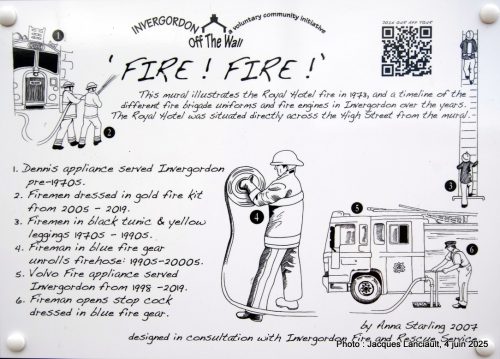 INVERGORDON voluntary community initiative
Off The Wall
2026 OUR APP TOUR
'FIRE! FIRE!'
This mural illustrates the Royal Hotel fire in 1973, and a timeline of the
different fire brigade uniforms and fire engines in Invergordon over the years.
The Royal Hotel was situated directly across the High Street from the mural.
1. Dennis appliance served Invergordon
pre-1970s.
2. Firemen dressed in gold fire kit
from 2005 - 2019.
3. Firemen in black tunic & yellow
leggings 1970s - 1990s.
4. Fireman in blue fire gear
unrolls firehose: 1990s-2000s.
5. Volvo Fire appliance served
Invergordon from 1998 -2019.
6. Fireman opens stop cock
dressed in blue fire gear.
1
2
3
4
5
6
by Anna Starling 2007
designed in consultation with Invergordon Fire and Rescue Service
Photo : Jacques Lanciault, 4 juin 2025